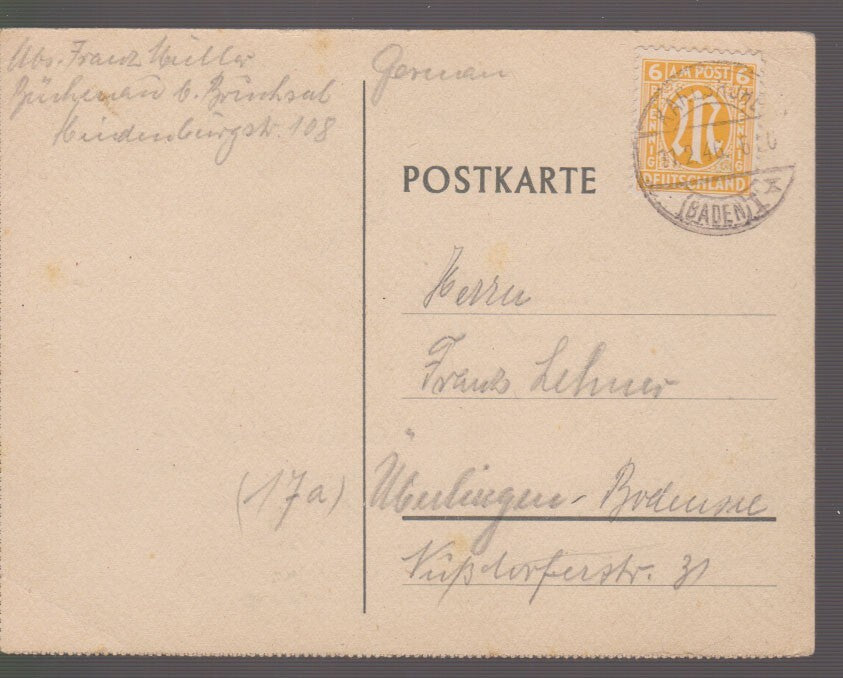 Abs. Franz Müller
Büchenau b. Bruchsal
Hindenburgstr. 108
German
6 AM POST 6
PFENNIG
PFENNIG
M
DEUTSCHLAND
(BADEN) 1
POSTKARTE
Herrn
Franz Lehner
(17a) Überlingen - Bodensee
Nußdorferstr. 31